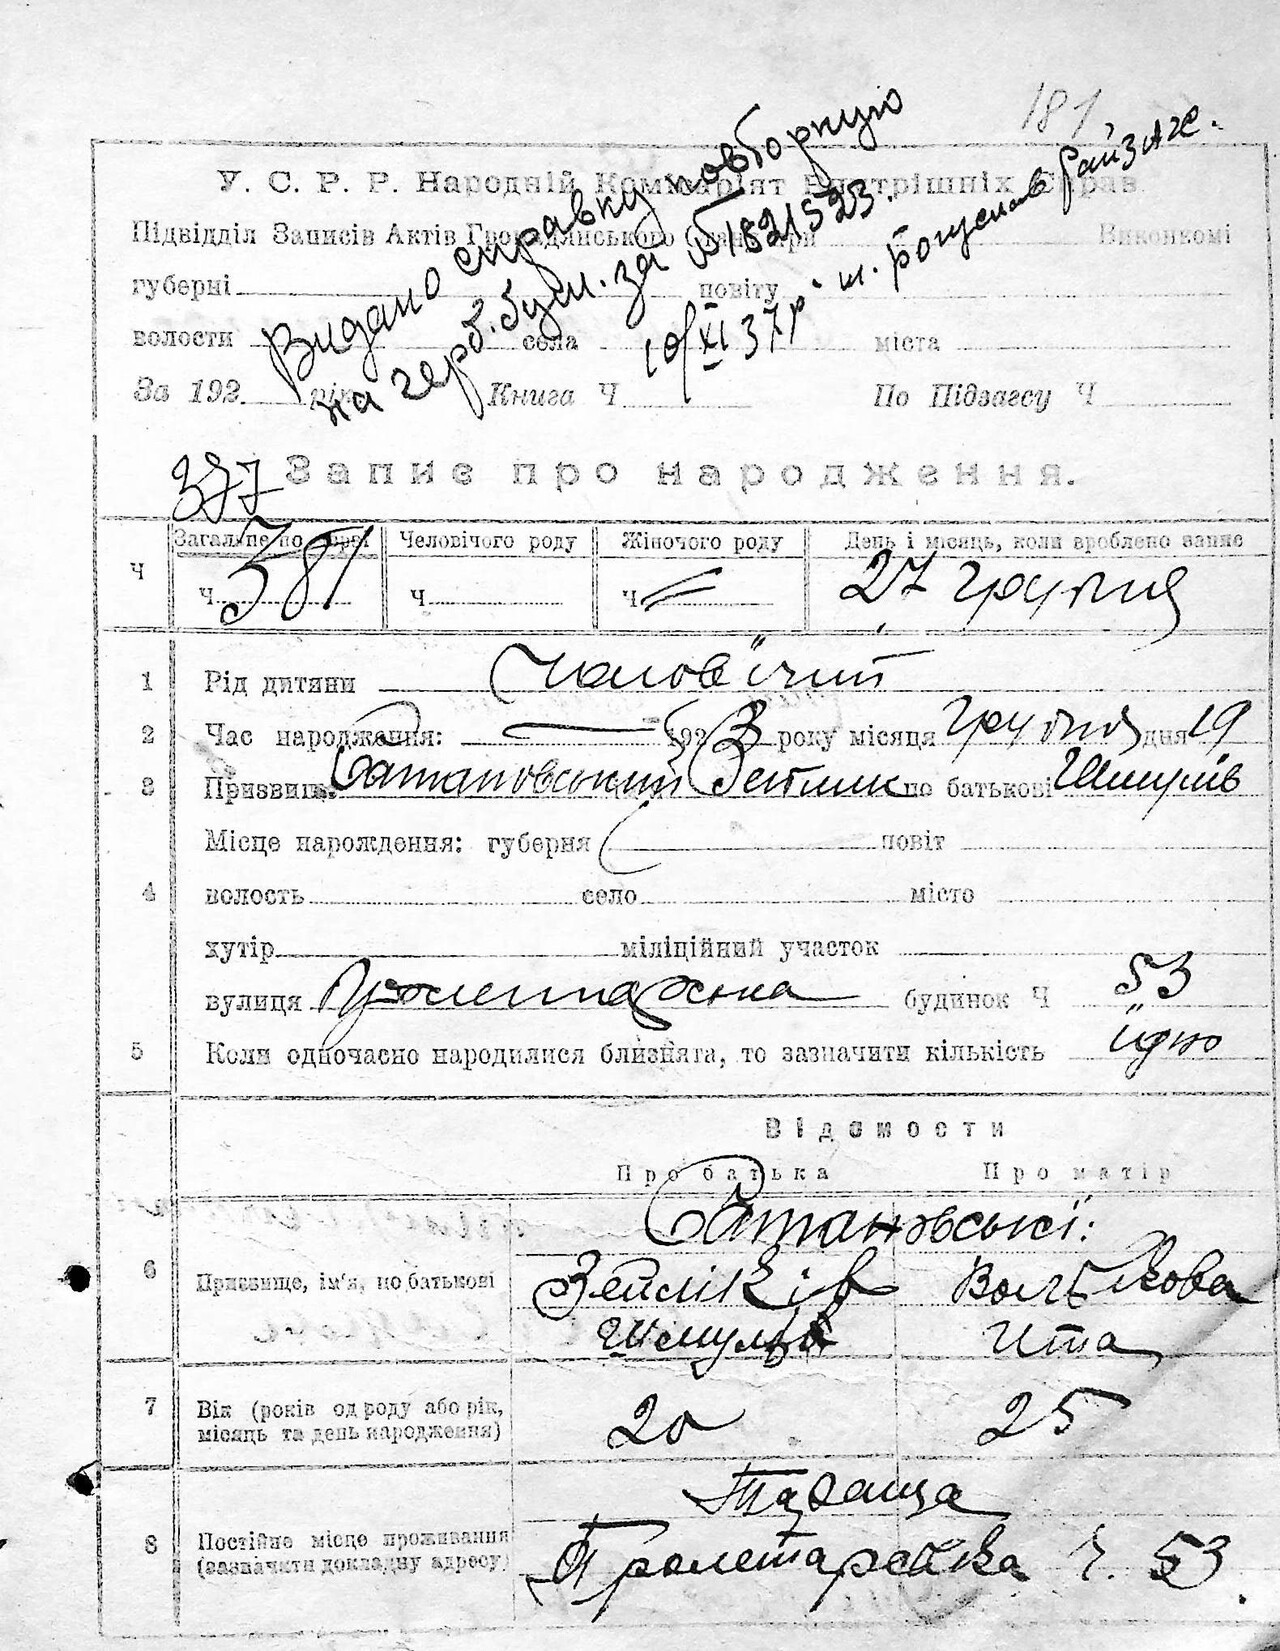 181
Видано справку повторную
на герб. бум. за № 1821523.
10/XI 37 р. м.
У. С. Р. Р. Народній Комісаріят Внутрішніх Справ.
Підвідділ Записів Актів Громадянського Стану при Виконкомі
губерні повіту
волости села міста
За 192 рік Книга Ч По Підзагсу Ч
377 Запис про народження.
Ч Загальне по реєстрі Человічого роду Жіночого роду День і місяць, коли вроблено запис
Ч 381 Ч Ч 27 грудня
1 Рід дитини Чолов'ічий
2 Час народження: 1923 року місяця грудня дня 19
3 Призвище Сатановський по батькові Шмулів
Місце народження: губерня повіт
4 волость село місто
хутір міліційний участок
вулиця Пролетарська будинок Ч 53
5 Коли одночасно народилися близнята, то зазначити кількість їдно
Відомости
Про батька Про матір
Сатановські:
6 Призвище, ім'я, по батькові Зейліків Вольková
Шмуль Ита
7 Вік (років од роду або рік, 20 25
місяць та день народження)
Тараща
8 Постійне місце проживання
(зазначити докладну адресу) Пролетарська ч. 53